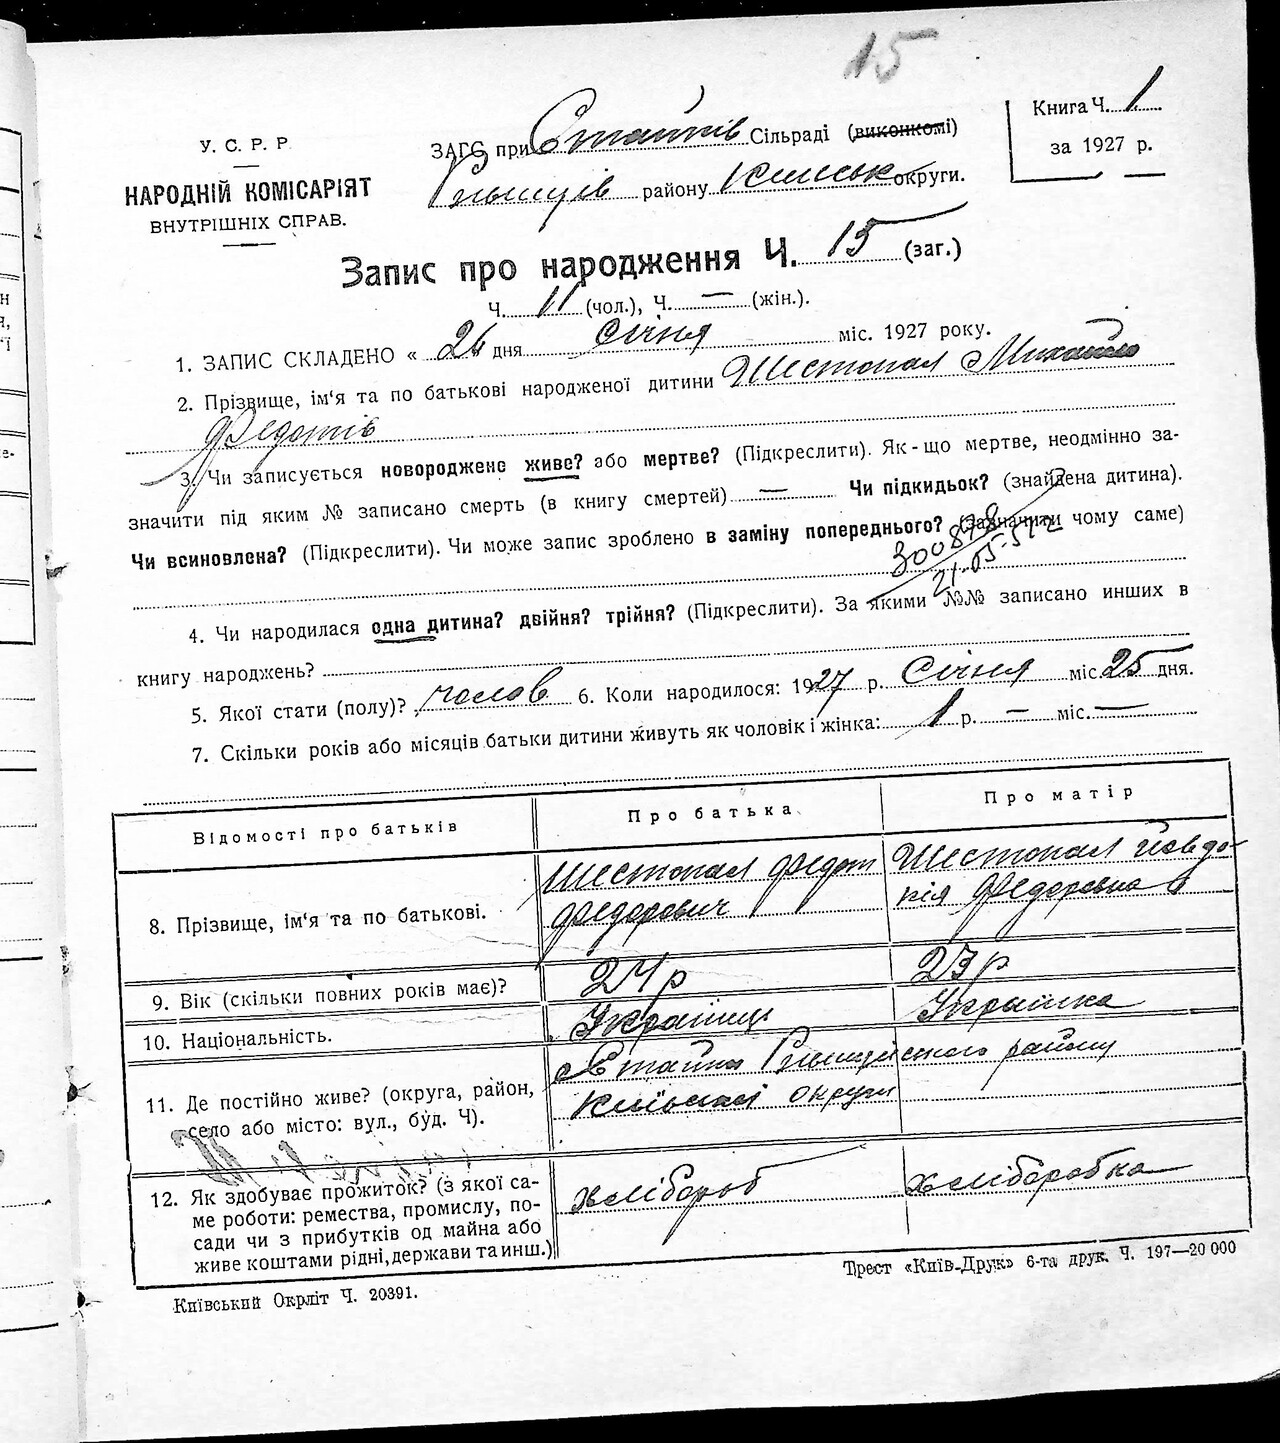 15
У. С. Р. Р.
НАРОДНІЙ КОМІСАРІЯТ
ВНУТРІШНІХ СПРАВ.
ЗАГС при Стайків Сільраді (виконкомі)
Ржищів району Київськ округи.
Книга Ч. 1
за 1927 р.
Запис про народження Ч. 15 (заг.)
Ч. 11 (чол.), Ч. — (жін.).
1. ЗАПИС СКЛАДЕНО « 26 дня січня міс. 1927 року.
2. Прізвище, ім'я та по батькові народженої дитини Шестопал Михайло
Федотів
3. Чи записується новороджене живе? або мертве? (Підкреслити). Як-що мертве, неодмінно за-
значити під яким № записано смерть (в книгу смертей) — Чи підкидьок? (знайдена дитина).
Чи всиновлена? (Підкреслити). Чи може запис зроблено в заміну попереднього? (Зазначити чому саме)
300878
4. Чи народилася одна дитина? двійня? трійня? (Підкреслити). За якими №№ записано инших в
книгу народжень?
5. Якої стати (полу)? чолов 6. Коли народилося: 1927 р. Січня міс. 25 дня.
7. Скільки років або місяців батьки дитини живуть як чоловік і жінка: 1 р. — міс. —
Відомості про батьків Про батька Про матір
8. Прізвище, ім'я та по батькові. Шестопал Федот Шестопал Йовдо-
Федорович кія Федоровна
9. Вік (скільки повних років має)? 24 р 23 р
10. Національність. Українць Українка
11. Де постійно живе? (округа, район,
село або місто: вул., буд. Ч). Стайки Ржищівського району
Київської округи
12. Як здобуває прожиток? (з якої са-
ме роботи: ремества, промислу, по-
сади чи з прибутків од майна або
живе коштами рідні, держави та инш.) хлібороб хліборобка
Київський Окрліт Ч. 20391.
Трест «Київ-Друк» 6-та друк. Ч. 197—20 000